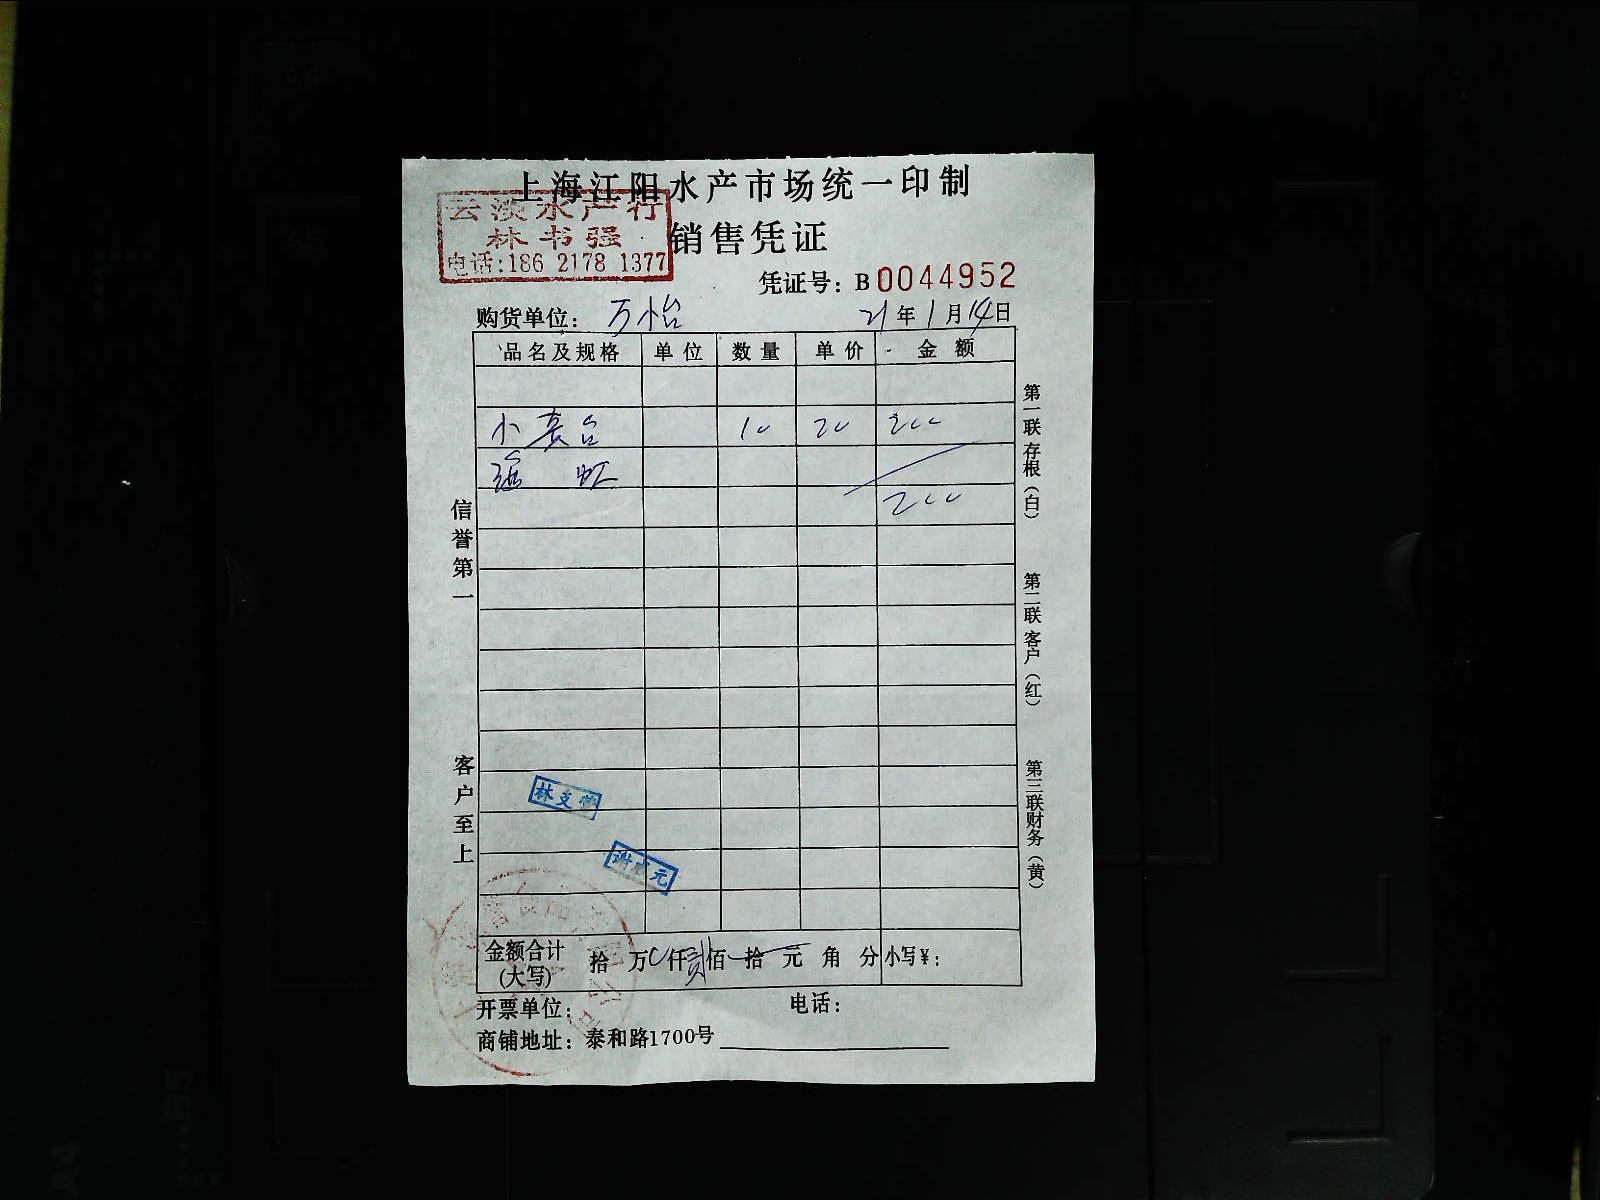 上海江阳水产市场统一印制
云淡水产行
林书强
电话:186 2178 1377
销售凭证
凭证号：B 0044952
购货单位：万怡
21年1月14日
品名及规格 单位 数量 单价 金额
小 10 20 200
200
信誉第一
客户至上
第一联存根（白）
第二联客户（红）
第三联财务（黄）
金额合计（大写） 拾 万 仟贰佰 拾 元 角 分 小写￥：
开票单位：
电话：
商铺地址：泰和路1700号